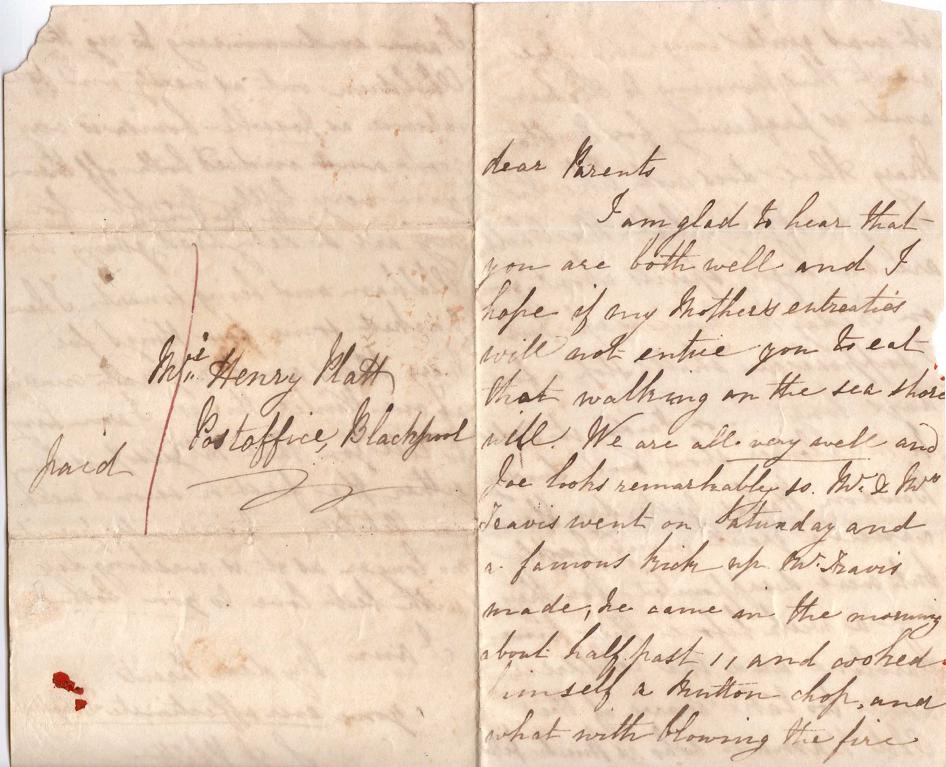 Mrs. Henry Platt
Postoffice, Blackpool
paid
dear Parents
I am glad to hear that
you are both well and I
hope if my Mothers entreaties
will not entice you to eat
that walking on the sea shore
will. We are all very well and
Joe looks remarkably so. Mr. & Mrs
Travis went on Saturday and
a famous kick up Mr. Travis
made, he came in the morning
about half past 11 and cooked
himself a Mutton chop, and
what with blowing the fire